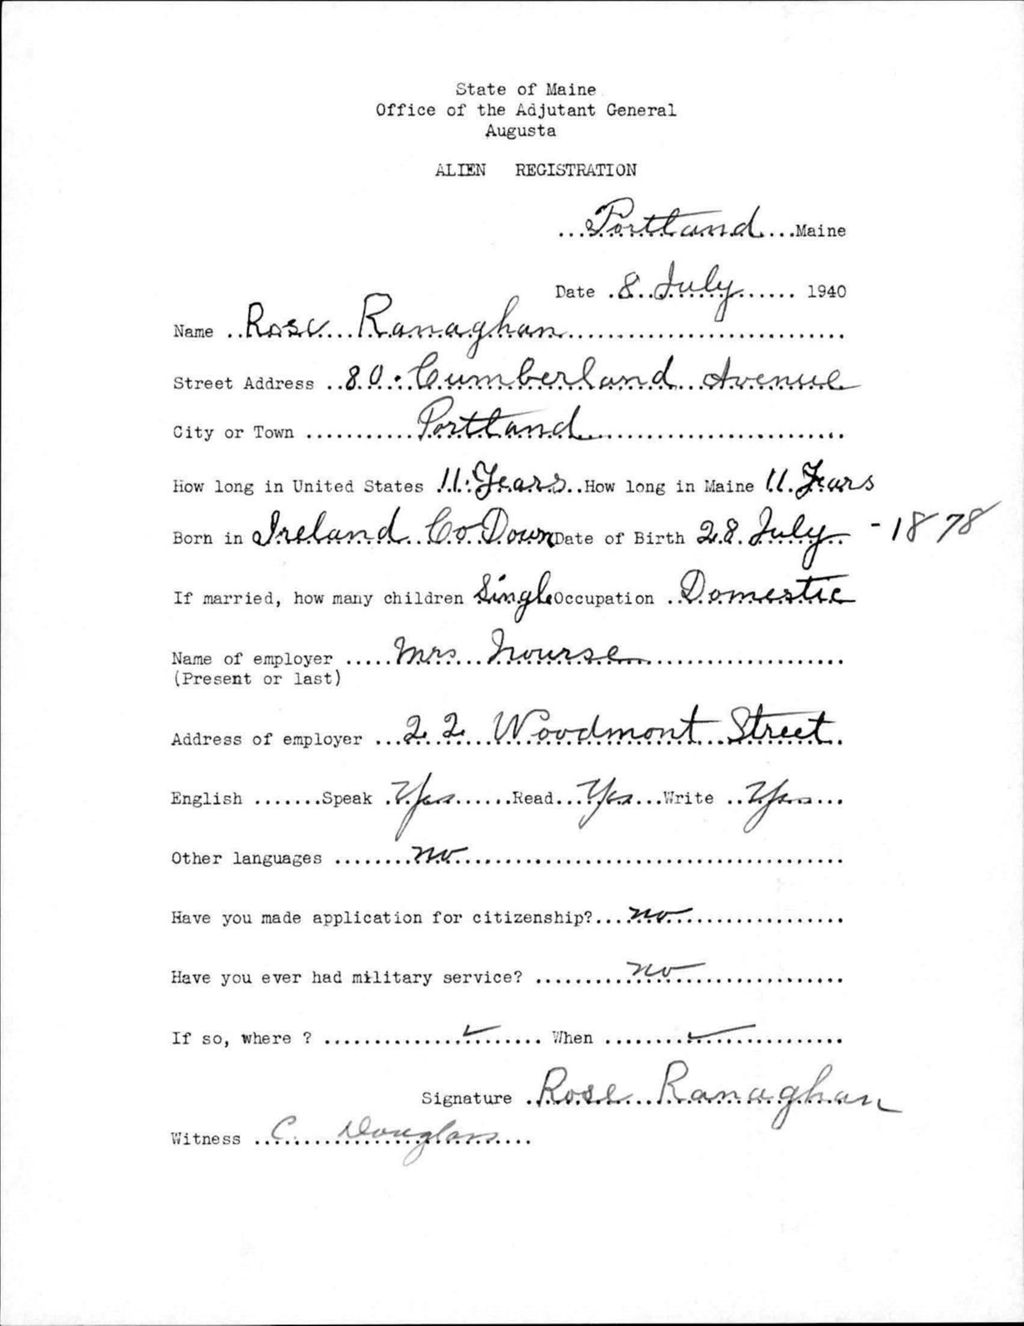 State of Maine
Office of the Adjutant General
Augusta
ALIEN REGISTRATION
...Portland...Maine
Date .8..July...... 1940
Name ..Rose...Ranaghan..............................
Street Address ..80..Cumberland...Avenue
City or Town ...........Portland..........................
How long in United States .11.Years..How long in Maine 11.Years
Born in Ireland..Co.Down Date of Birth 28.July - 1878
If married, how many children Single Occupation ..Domestic
Name of employer .....Mrs...Nourse....................
(Present or last)
Address of employer ...22...Woodmont...Street.
English .......Speak .Yes......Read...Yes...Write ..Yes...
Other languages ........no......................................
Have you made application for citizenship?...no................
Have you ever had military service? .........no...............
If so, where ? ..............✓....... When ........✓............
Signature .Rose...Ranaghan
Witness ..C......Douglass....